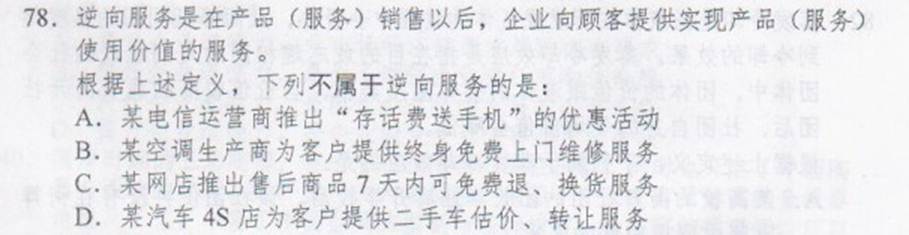 78. 逆向服务是在产品（服务）销售以后，企业向顾客提供实现产品（服务）
使用价值的服务。
根据上述定义，下列不属于逆向服务的是：
A. 某电信运营商推出“存话费送手机”的优惠活动
B. 某空调生产商为客户提供终身免费上门维修服务
C. 某网店推出售后商品 7 天内可免费退、换货服务
D. 某汽车 4S 店为客户提供二手车估价、转让服务